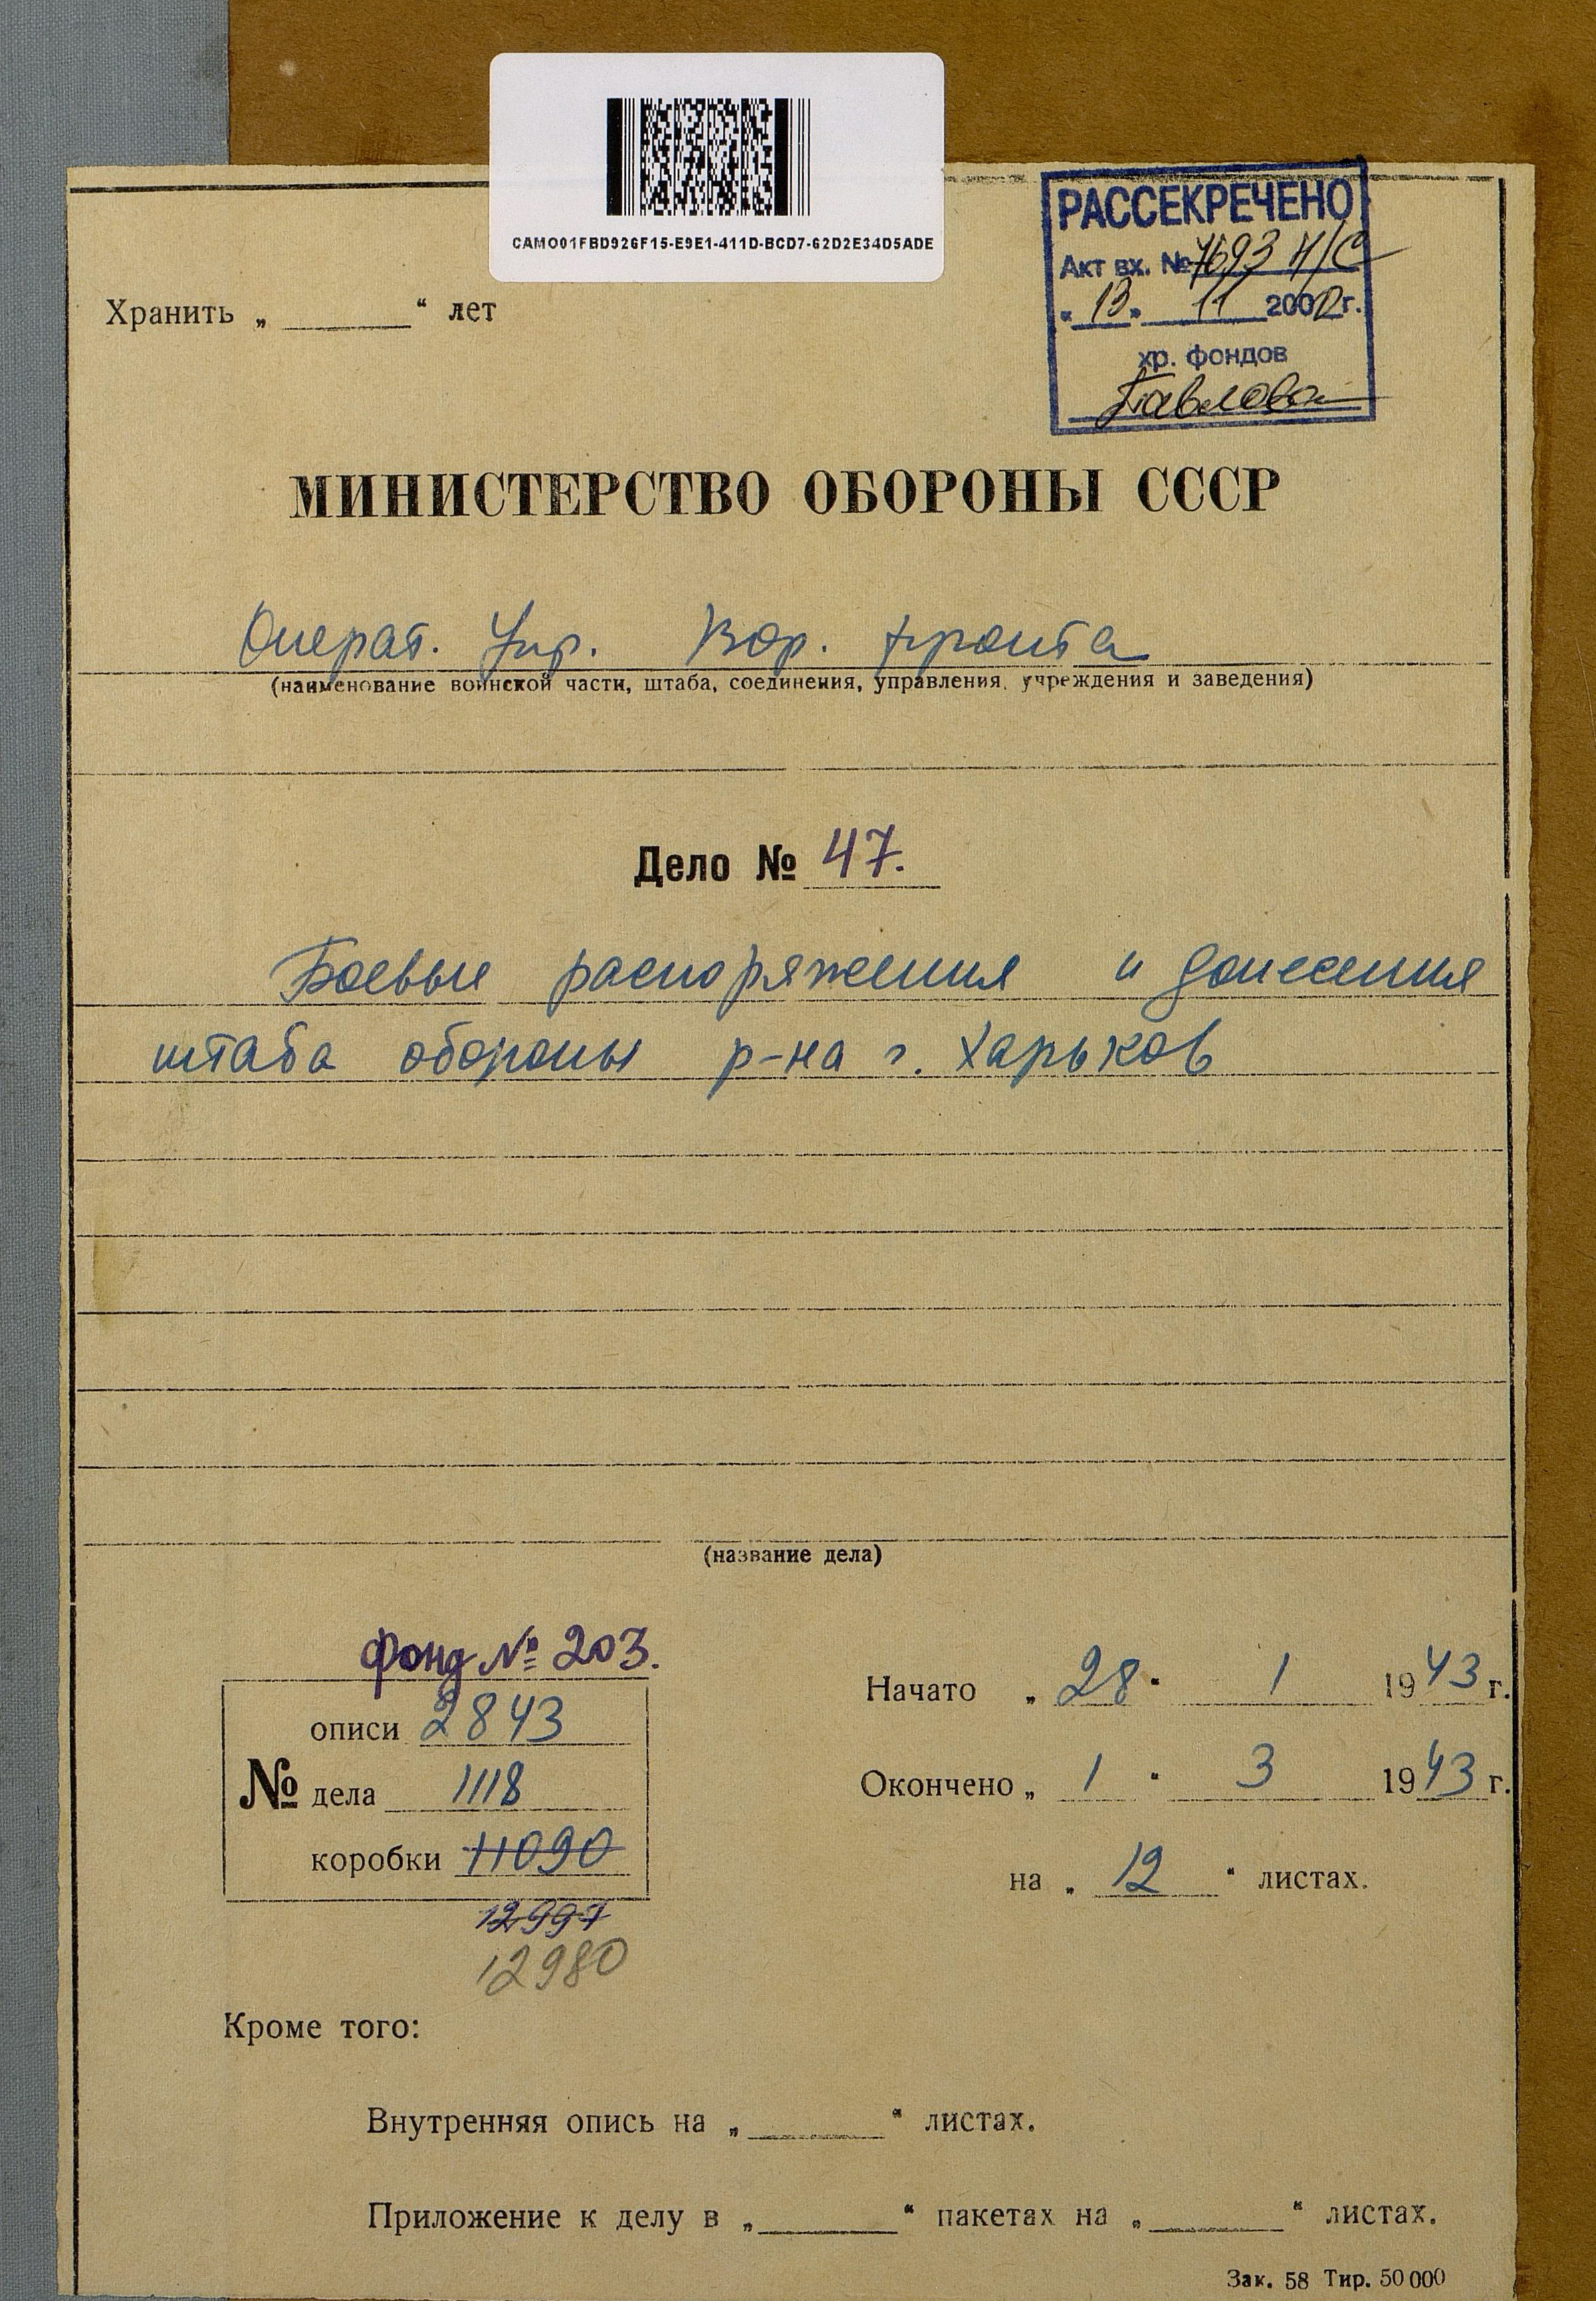 CAMO01FBD926F15-E9E1-411D-BCD7-62D2E34D5ADE
РАССЕКРЕЧЕНО
Акт вх. № 7693 н/с
"13" 11 2000г.
хр. фондов
Павлова
Хранить „ “ лет
МИНИСТЕРСТВО ОБОРОНЫ СССР
Операт. Упр. Вор. фронта
(наименование воинской части, штаба, соединения, управления, учреждения и заведения)
Дело № 47.
Боевые распоряжения и донесения
штаба обороны р-на г. Харьков
(название дела)
Фонд № 203.
описи 2843
№ дела 1118
коробки 11090
12997
12980
Начато „28“ 1 1943 г.
Окончено „1“ 3 1943 г.
на „12“ листах.
Кроме того:
Внутренняя опись на „ “ листах.
Приложение к делу в „ “ пакетах на „ “ листах.
Зак. 58 Тир. 50 000